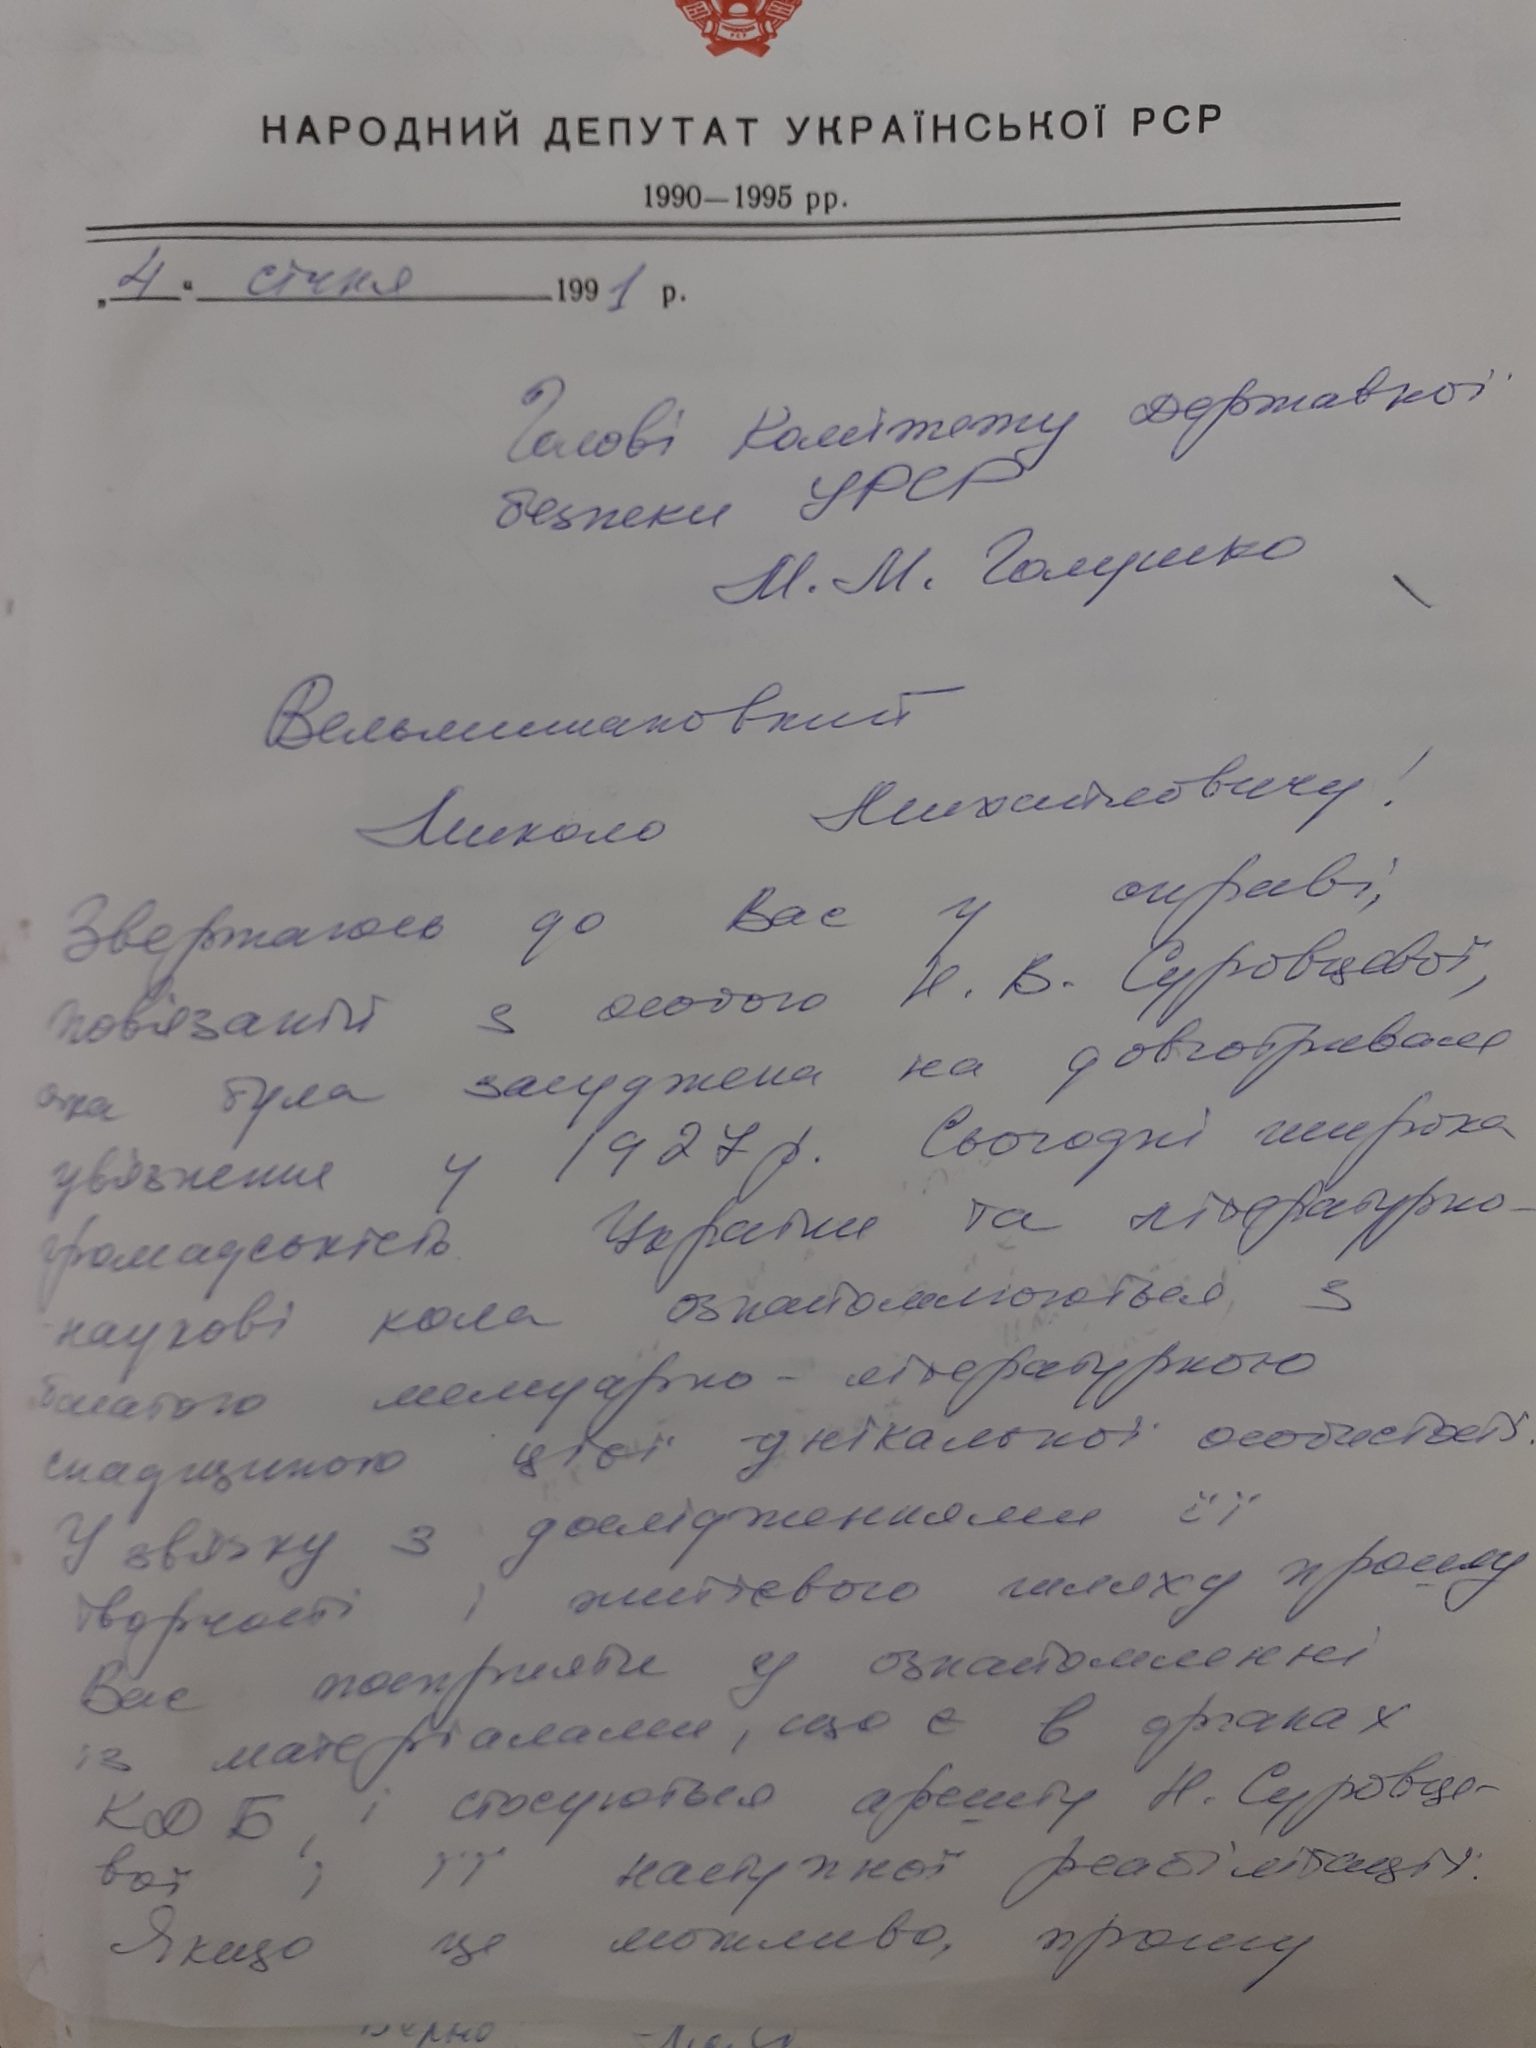 НАРОДНИЙ ДЕПУТАТ УКРАЇНСЬКОЇ РСР
1990—1995 рр.
„4“ січня 1991 р.
Голові Комітету Державної
безпеки УРСР
М. М. Голушко
Вельмишановний
Миколо Михайловичу!
Звертаюсь до Вас у справі,
пов'язаній з особою Н. В. Суровцевої,
яка була засуджена на довготривале
ув'язнення у 1927 р. Сьогодні широка
громадськість України та літературно-
наукові кола ознайомлюються з
багатою мемуарно-літературною
спадщиною цієї унікальної особистості.
У зв'язку з дослідженнями її
творчості і життєвого шляху прошу
Вас посприяти у ознайомленні
із матеріалами, що є в органах
КДБ, і стосуються арешту Н. Суровце-
вої і її наступної реабілітації.
Якщо це можливо, прошу